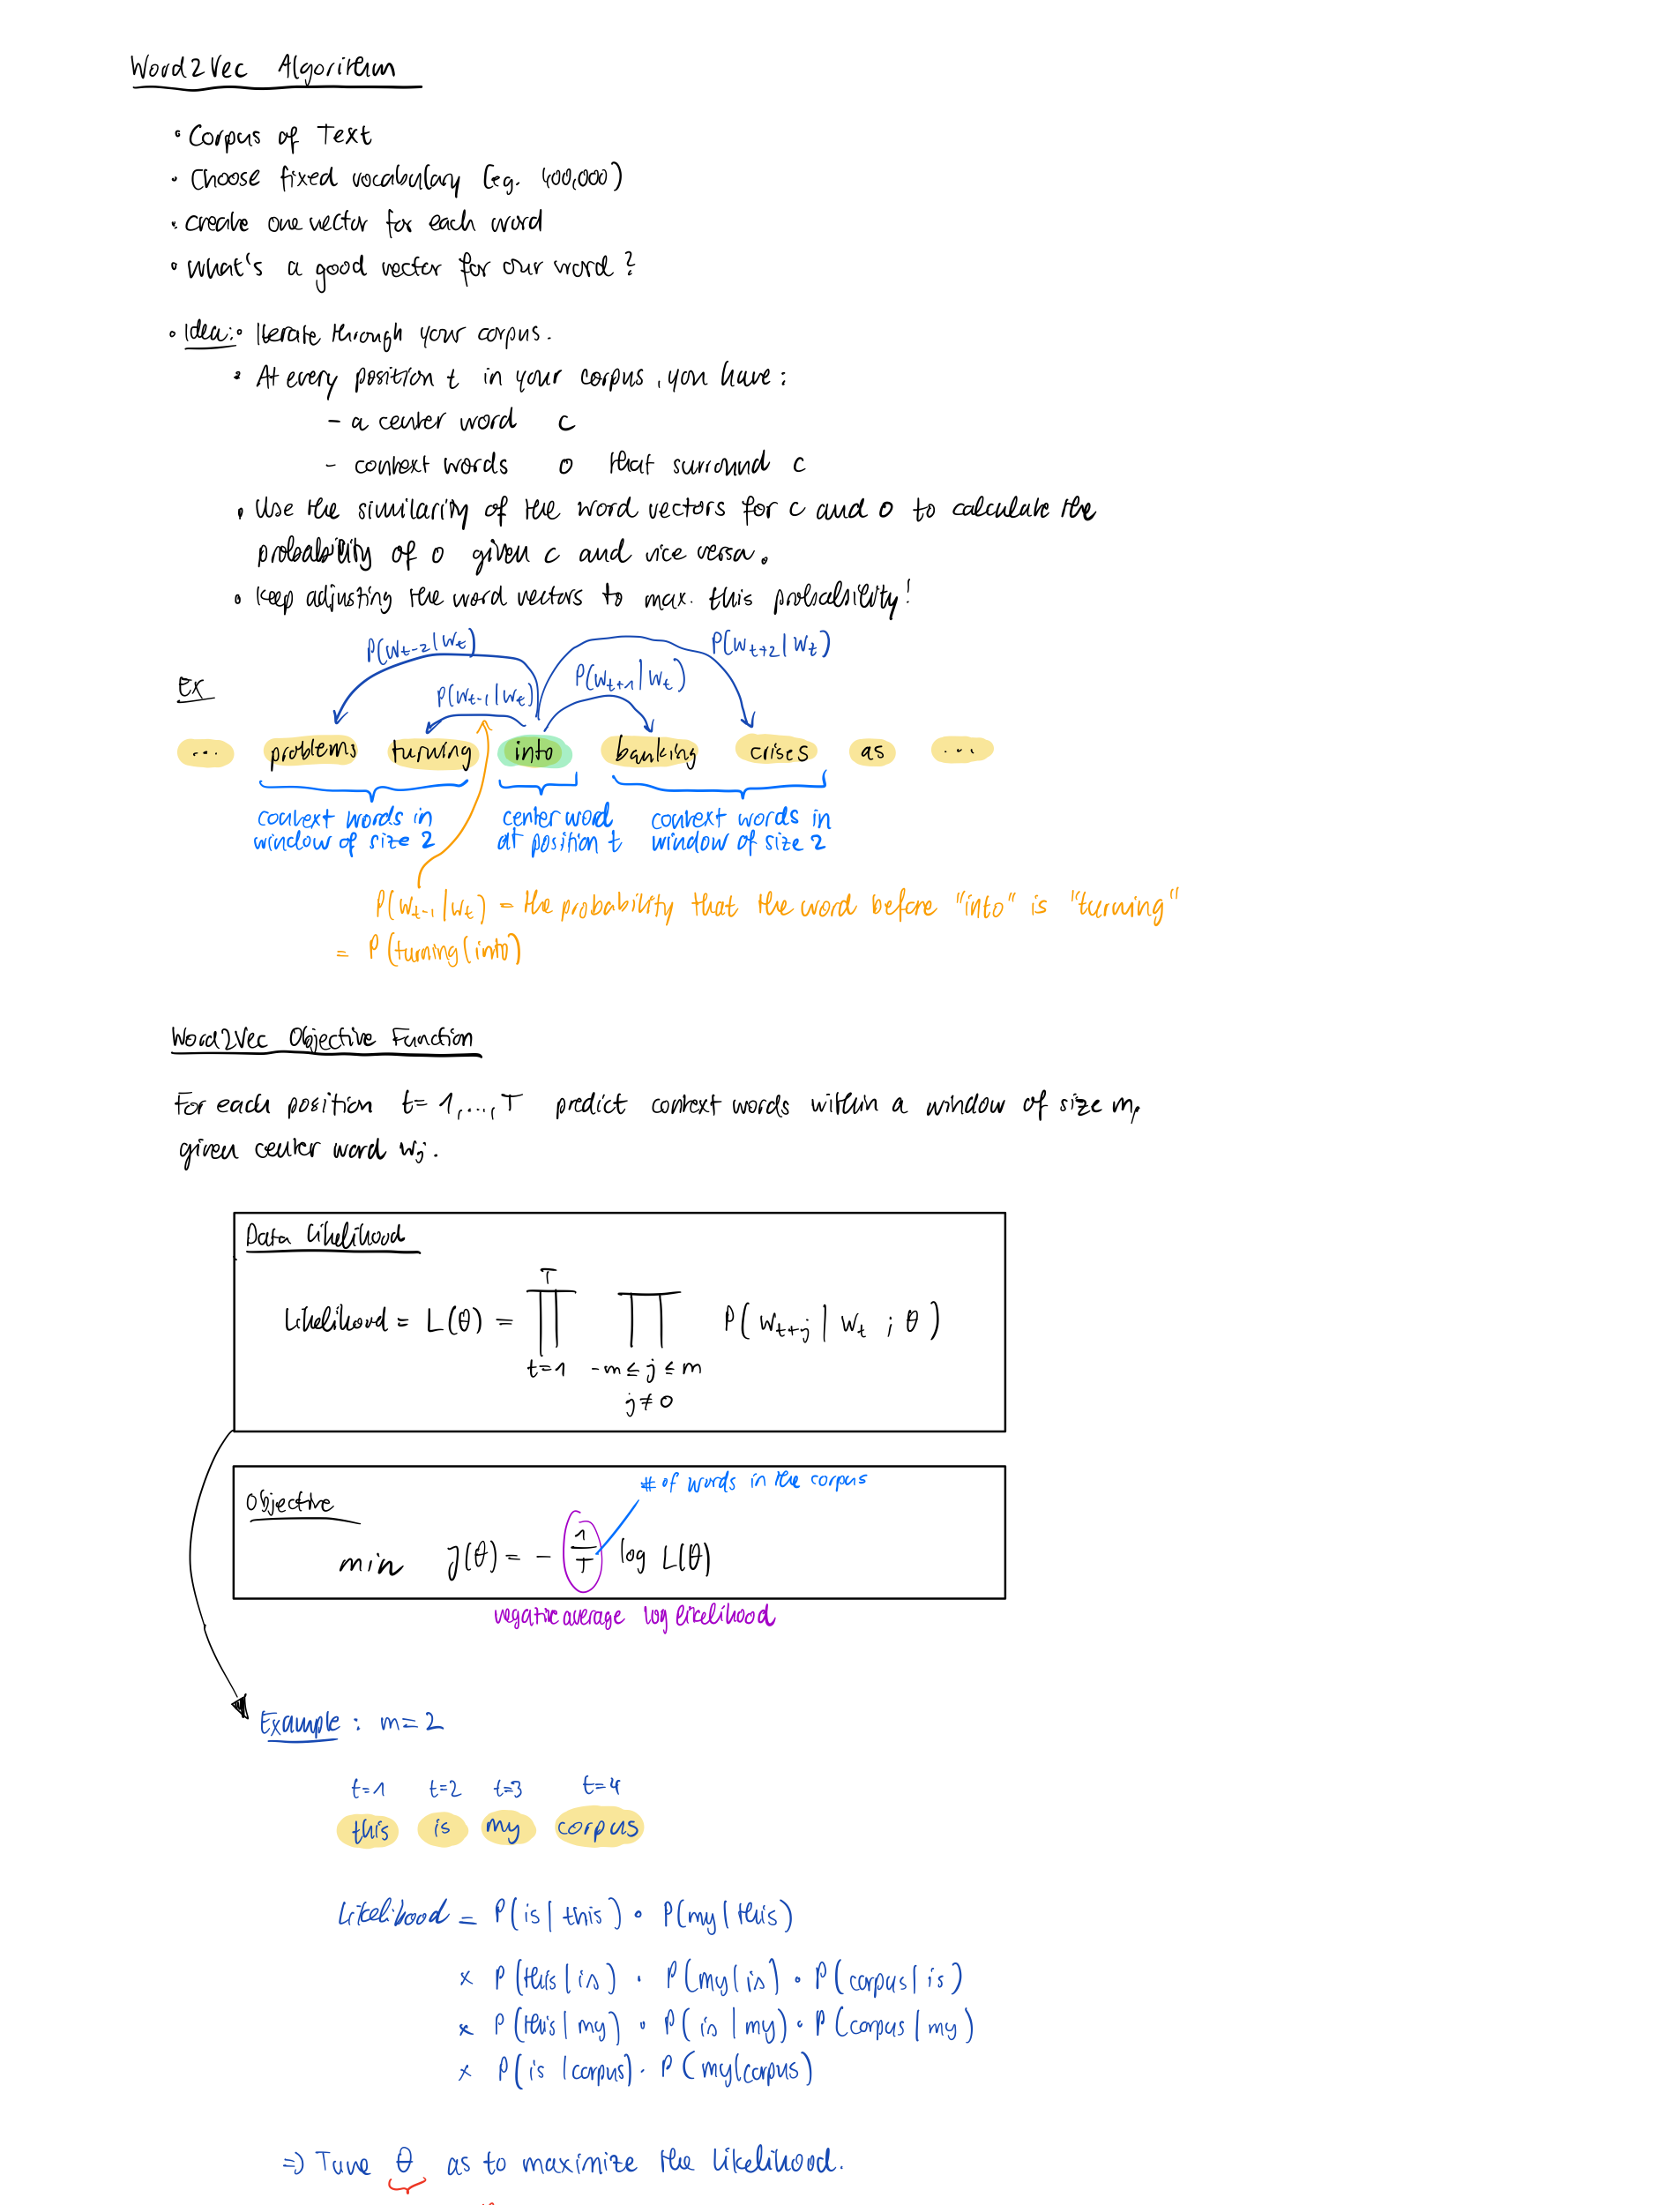 Word2Vec Algorithm
• Corpus of Text
• Choose fixed vocabulary (eg. 400,000)
• create one vector for each word
• What's a good vector for our word?
• Idea: • Iterate through your corpus.
• At every position t in your corpus, you have:
- a center word c
- context words o that surround c
• Use the similarity of the word vectors for c and o to calculate the
probability of o given c and vice versa.
• Keep adjusting the word vectors to max. this probability!
P(w_{t-2} | w_t) P(w_{t+2} | w_t)
P(w_{t-1} | w_t) P(w_{t+1} | w_t)
Ex
... problems turning into banking crises as ...
context words in window of size 2
center word at position t
context words in window of size 2
P(w_{t-1} | w_t) = the probability that the word before "into" is "turning"
= P(turning | into)
Word2Vec Objective Function
For each position t = 1,...,T predict context words within a window of size m,
given center word w_j.
Data Likelihood
Likelihood = L(θ) = ∏_{t=1}^{T} ∏_{-m ≤ j ≤ m, j ≠ 0} P(w_{t+j} | w_t ; θ)
# of words in the corpus
Objective
min J(θ) = - 1/T log L(θ)
negative average log likelihood
Example : m = 2
t=1 t=2 t=3 t=4
this is my corpus
Likelihood = P(is | this) • P(my | this)
× P(this | is) • P(my | is) • P(corpus | is)
× P(this | my) • P(is | my) • P(corpus | my)
× P(is | corpus) • P(my | corpus)
=> Tune θ as to maximize the likelihood.